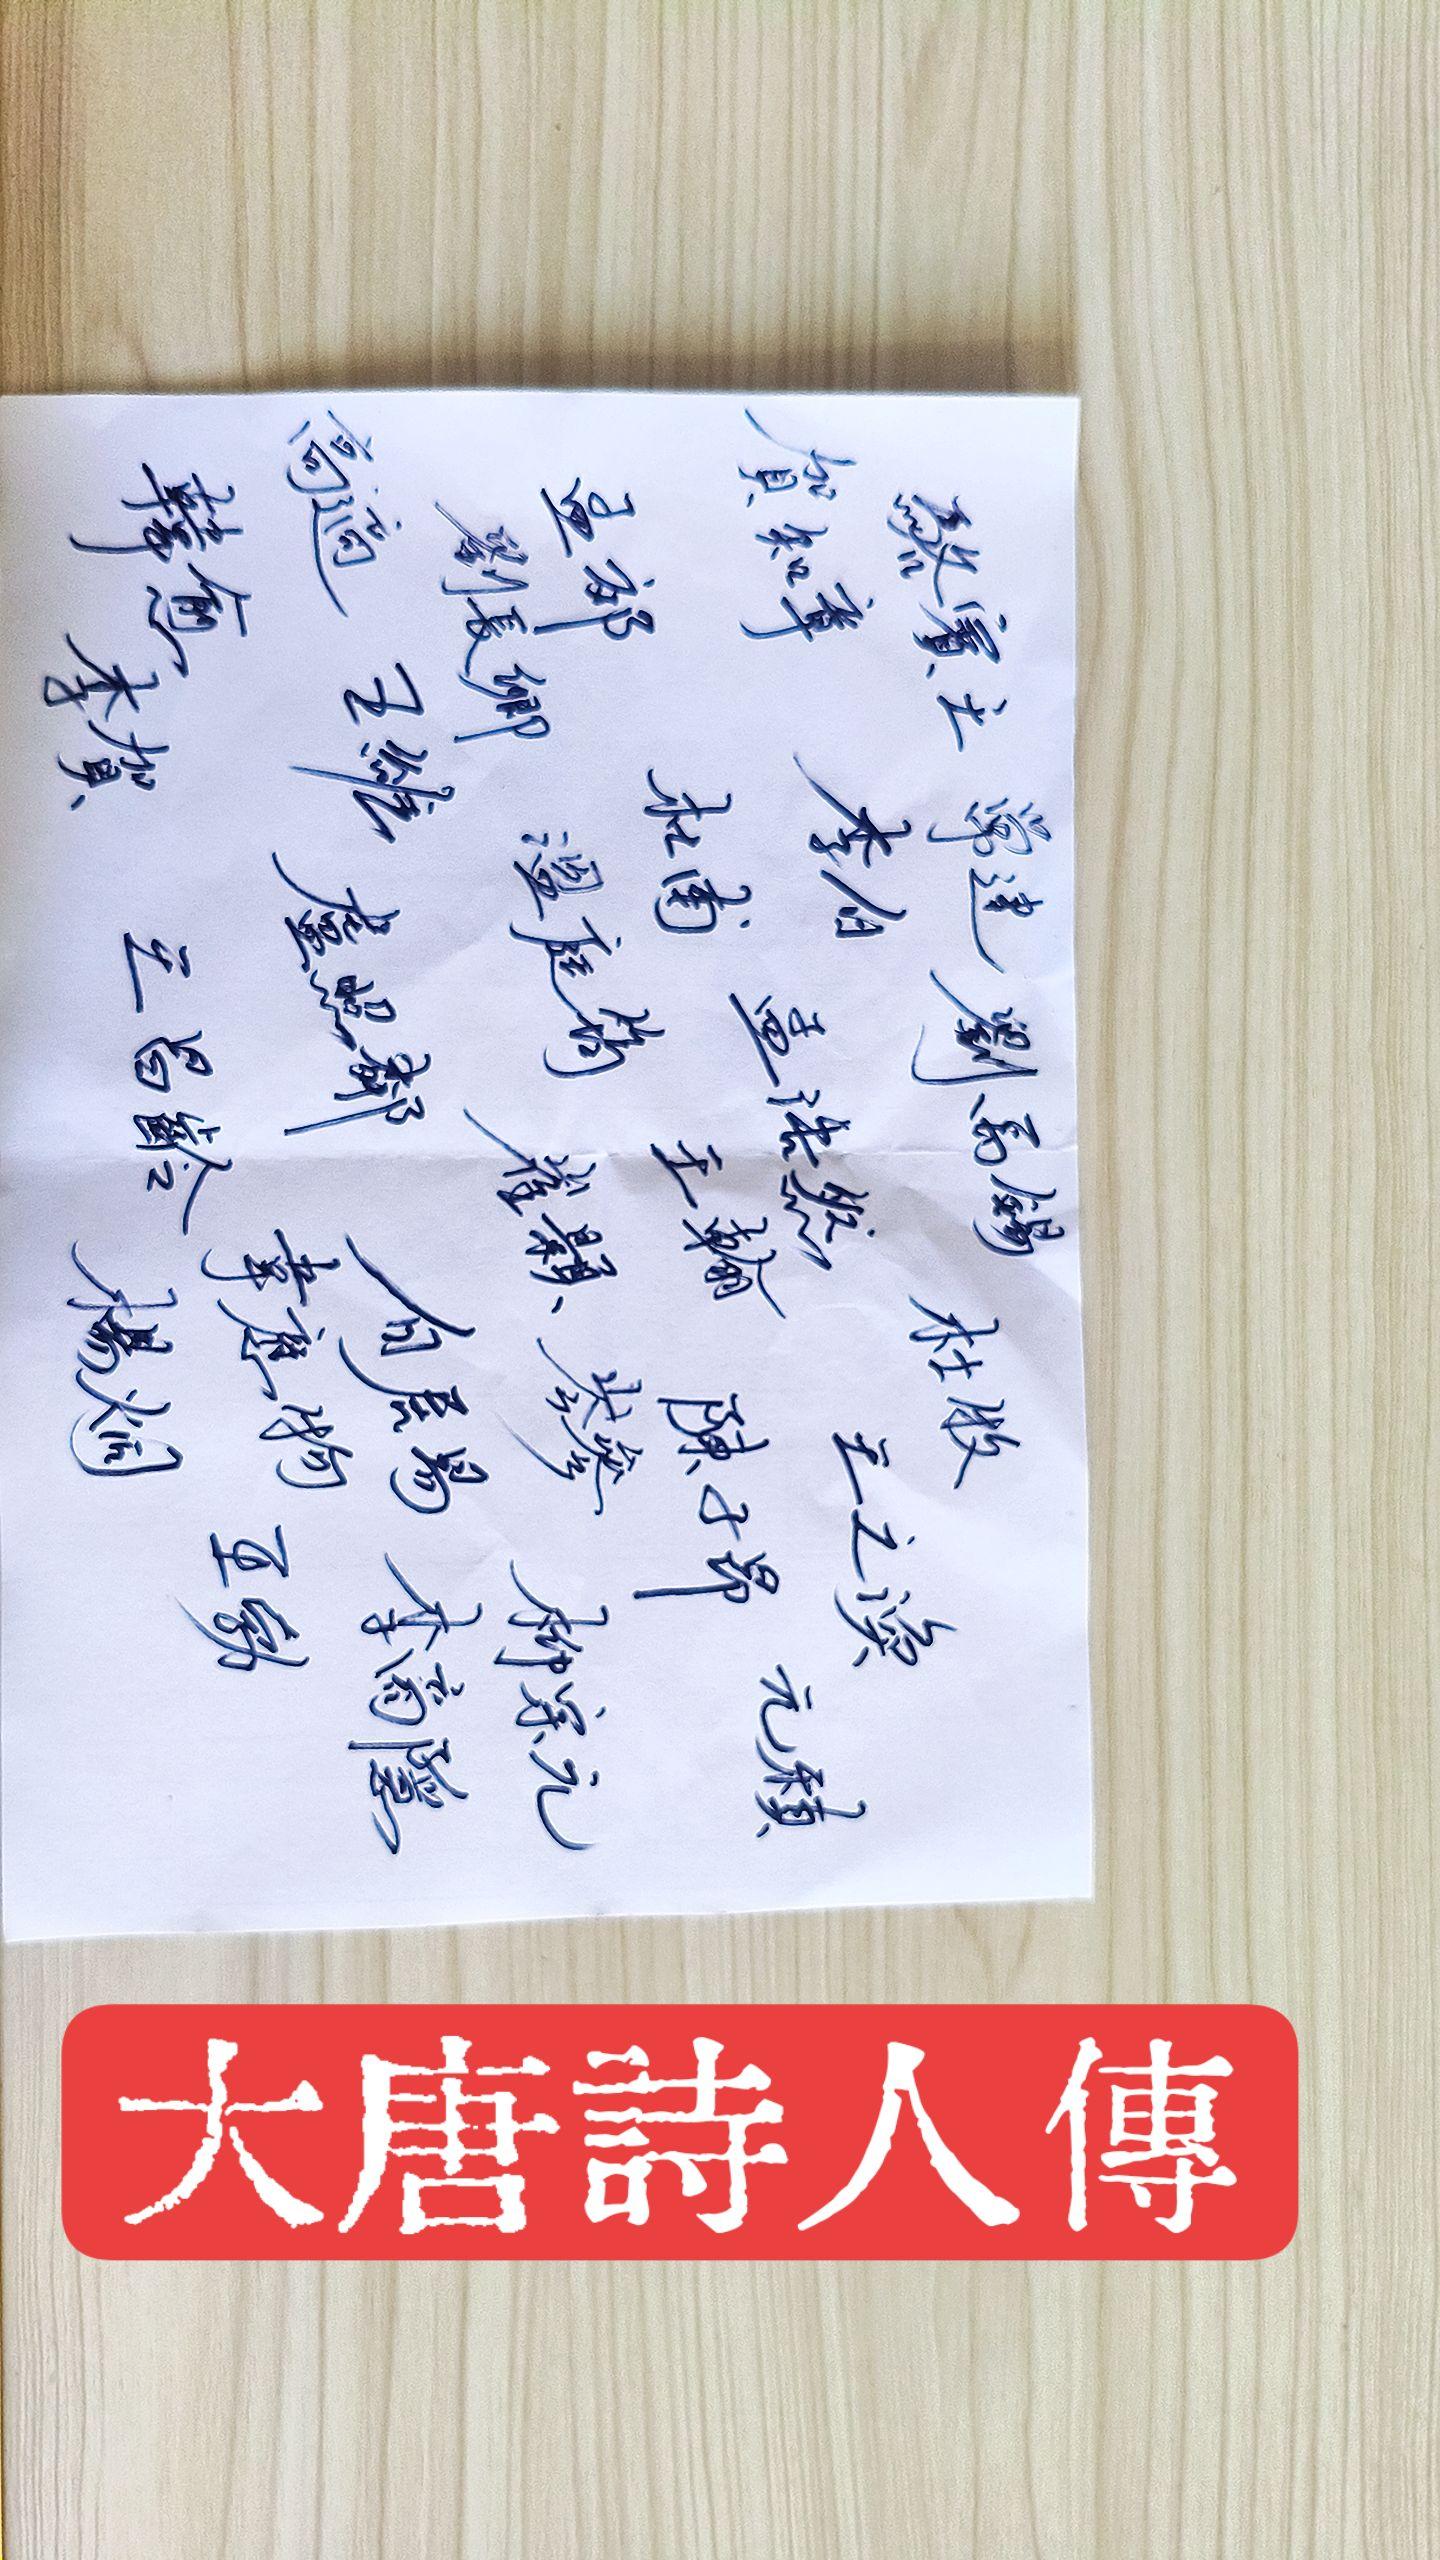 駱賓王
常建
劉禹錫
賀知章
李白
孟浩然
杜牧
王之渙
孟郊
杜甫
王翰
陳子昂
元稹
劉長卿
溫庭筠
崔顥
岑參
柳宗元
高適
王維
盧照鄰
白居易
李商隱
韓愈
李賀
王昌齡
韋應物
王勃
楊炯
大唐詩人傳